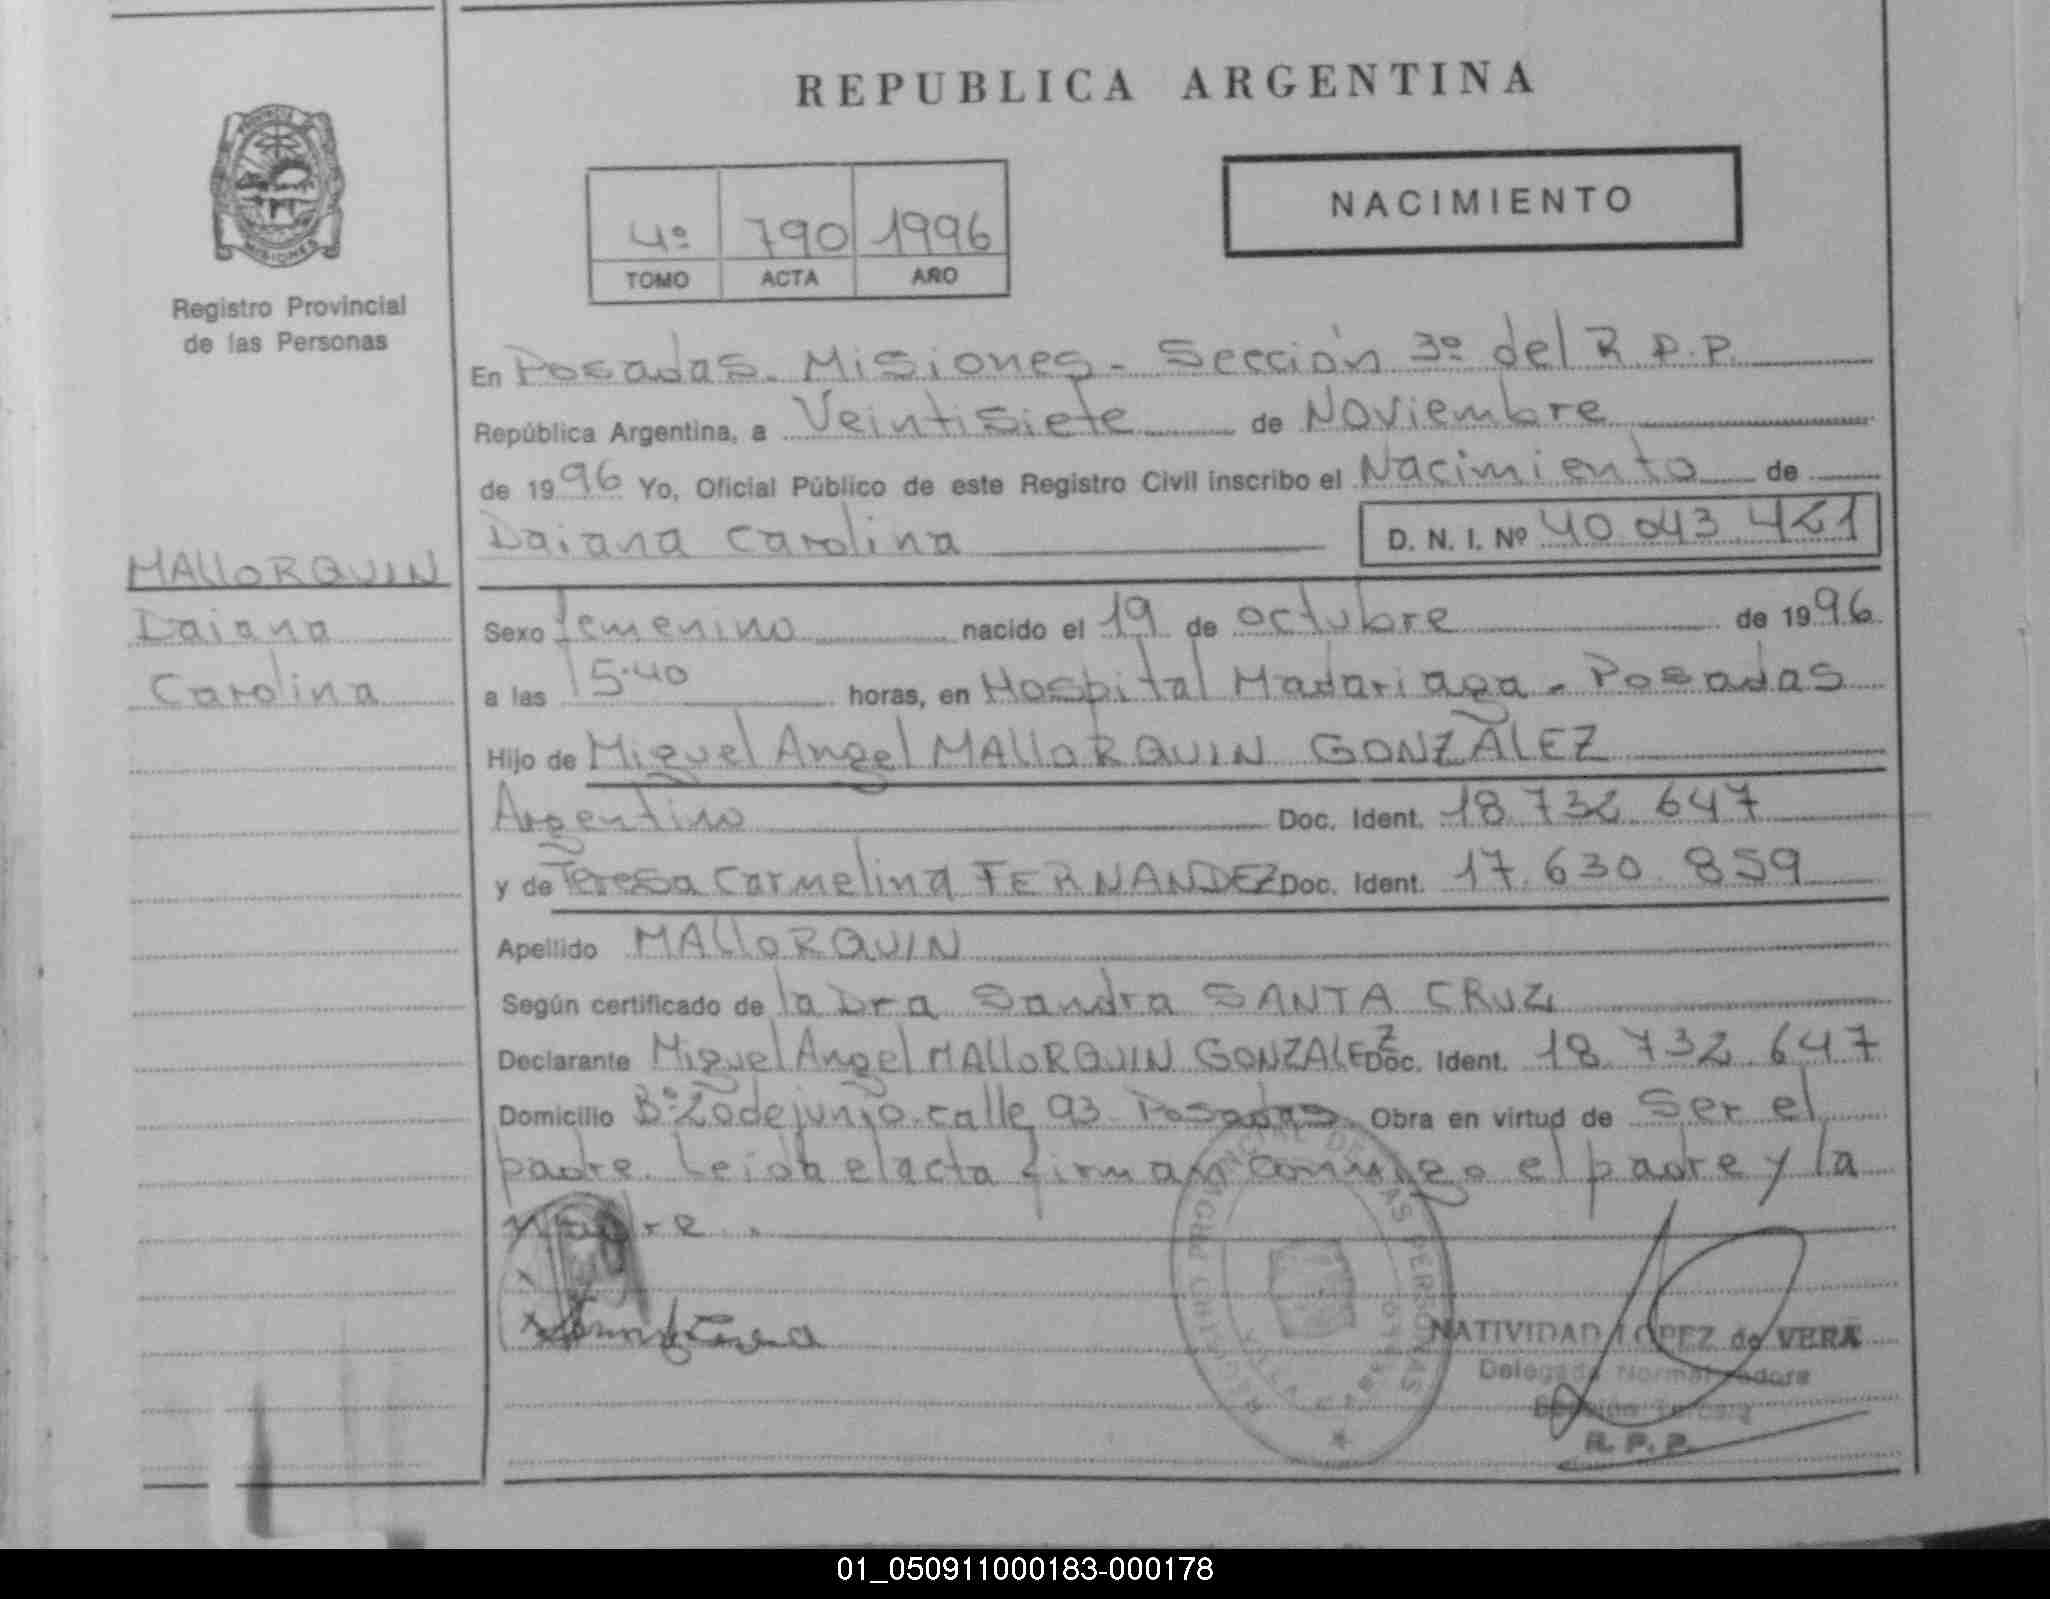 REPUBLICA ARGENTINA
NACIMIENTO
4º 790 1996
TOMO ACTA AÑO
Registro Provincial
de las Personas
MALLORQUIN
Daiana
Carolina
En Posadas. Misiones - Sección 3º del R.P.P.
República Argentina, a Veintisiete de Noviembre
de 1996 Yo, Oficial Público de este Registro Civil inscribo el Nacimiento de
Daiana Carolina D. N. I. Nº 40 043 421
Sexo femenino nacido el 19 de octubre de 1996
a las 15.40 horas, en Hospital Madariaga - Posadas
Hijo de Miguel Angel MALLORQUIN GONZALEZ
Argentino Doc. Ident. 18 732 647
y de Teresa Carmelina FERNANDEZ Doc. Ident. 17.630.859
Apellido MALLORQUIN
Según certificado de la Dra Sandra SANTA CRUZ
Declarante Miguel Angel MALLORQUIN GONZALEZ Doc. Ident. 18 732 647
Domicilio Bº 20 de junio. calle 93 Posadas Obra en virtud de Ser el
padre. Leida el acta firman conmigo el padre y la
madre.
REGISTRO PROVINCIAL DE LAS PERSONAS
NATIVIDAD LOPEZ de VERA
Delegada Normalizadora
Sección Tercera
R. P. P.
01_050911000183-000178